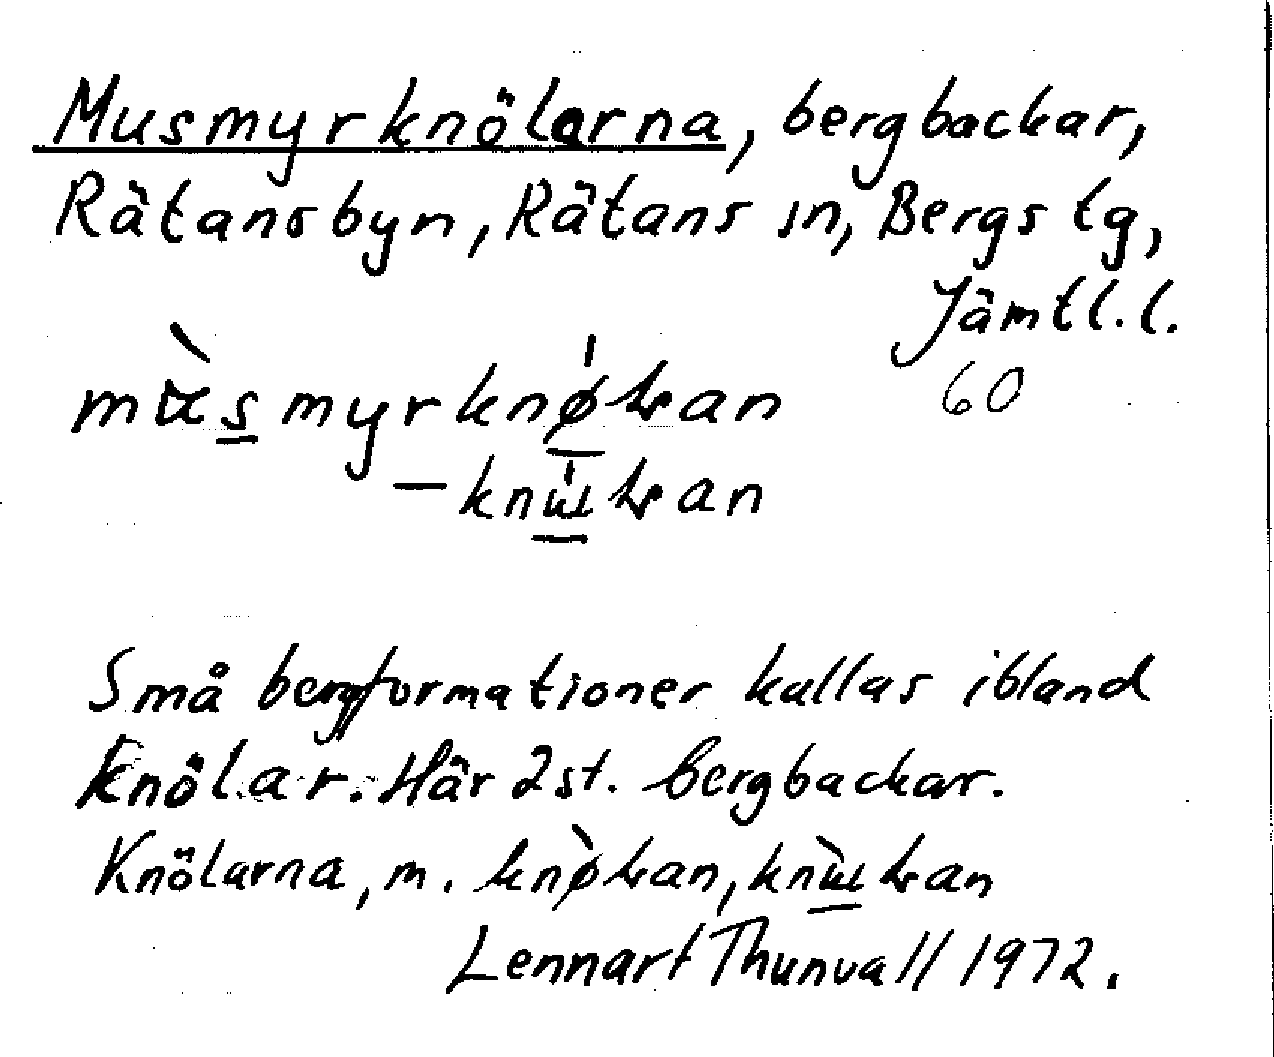 Musmyrknölarna, bergbackar,
Rätansbyn, Rätans sn, Bergs tg,
Jämtl.l.
60
Små bergformationer kallas ibland
knölar. Här 2 st. bergbackar.
Knölarna, m.
Lennart Thunvall 1972.